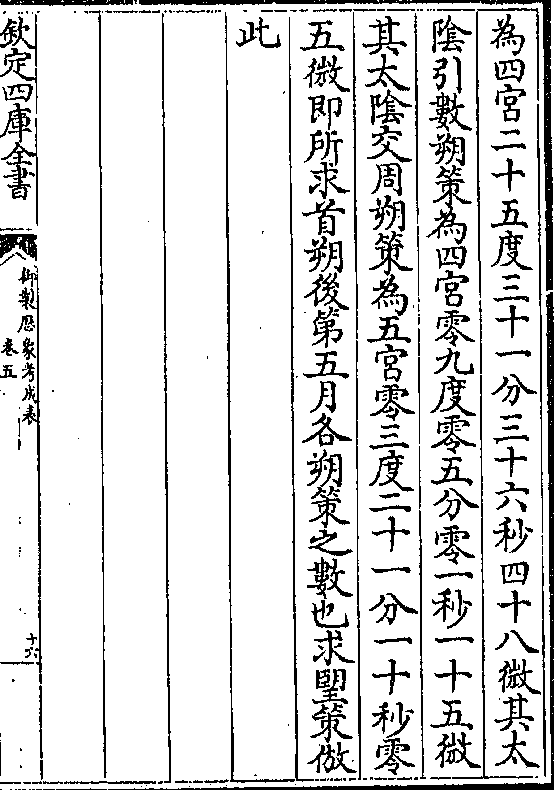 為四宮二十五度三十一分三十六秒四十八微其太
陰引數朔策為四宮零九度零五分零一秒一十五微
其太陰交周朔策為五宮零三度二十一分一十秒零
五微即所求首朔後第五月各朔策之數也求望策倣
此
欽定四庫全書
御製厯象考成表
卷五
十六